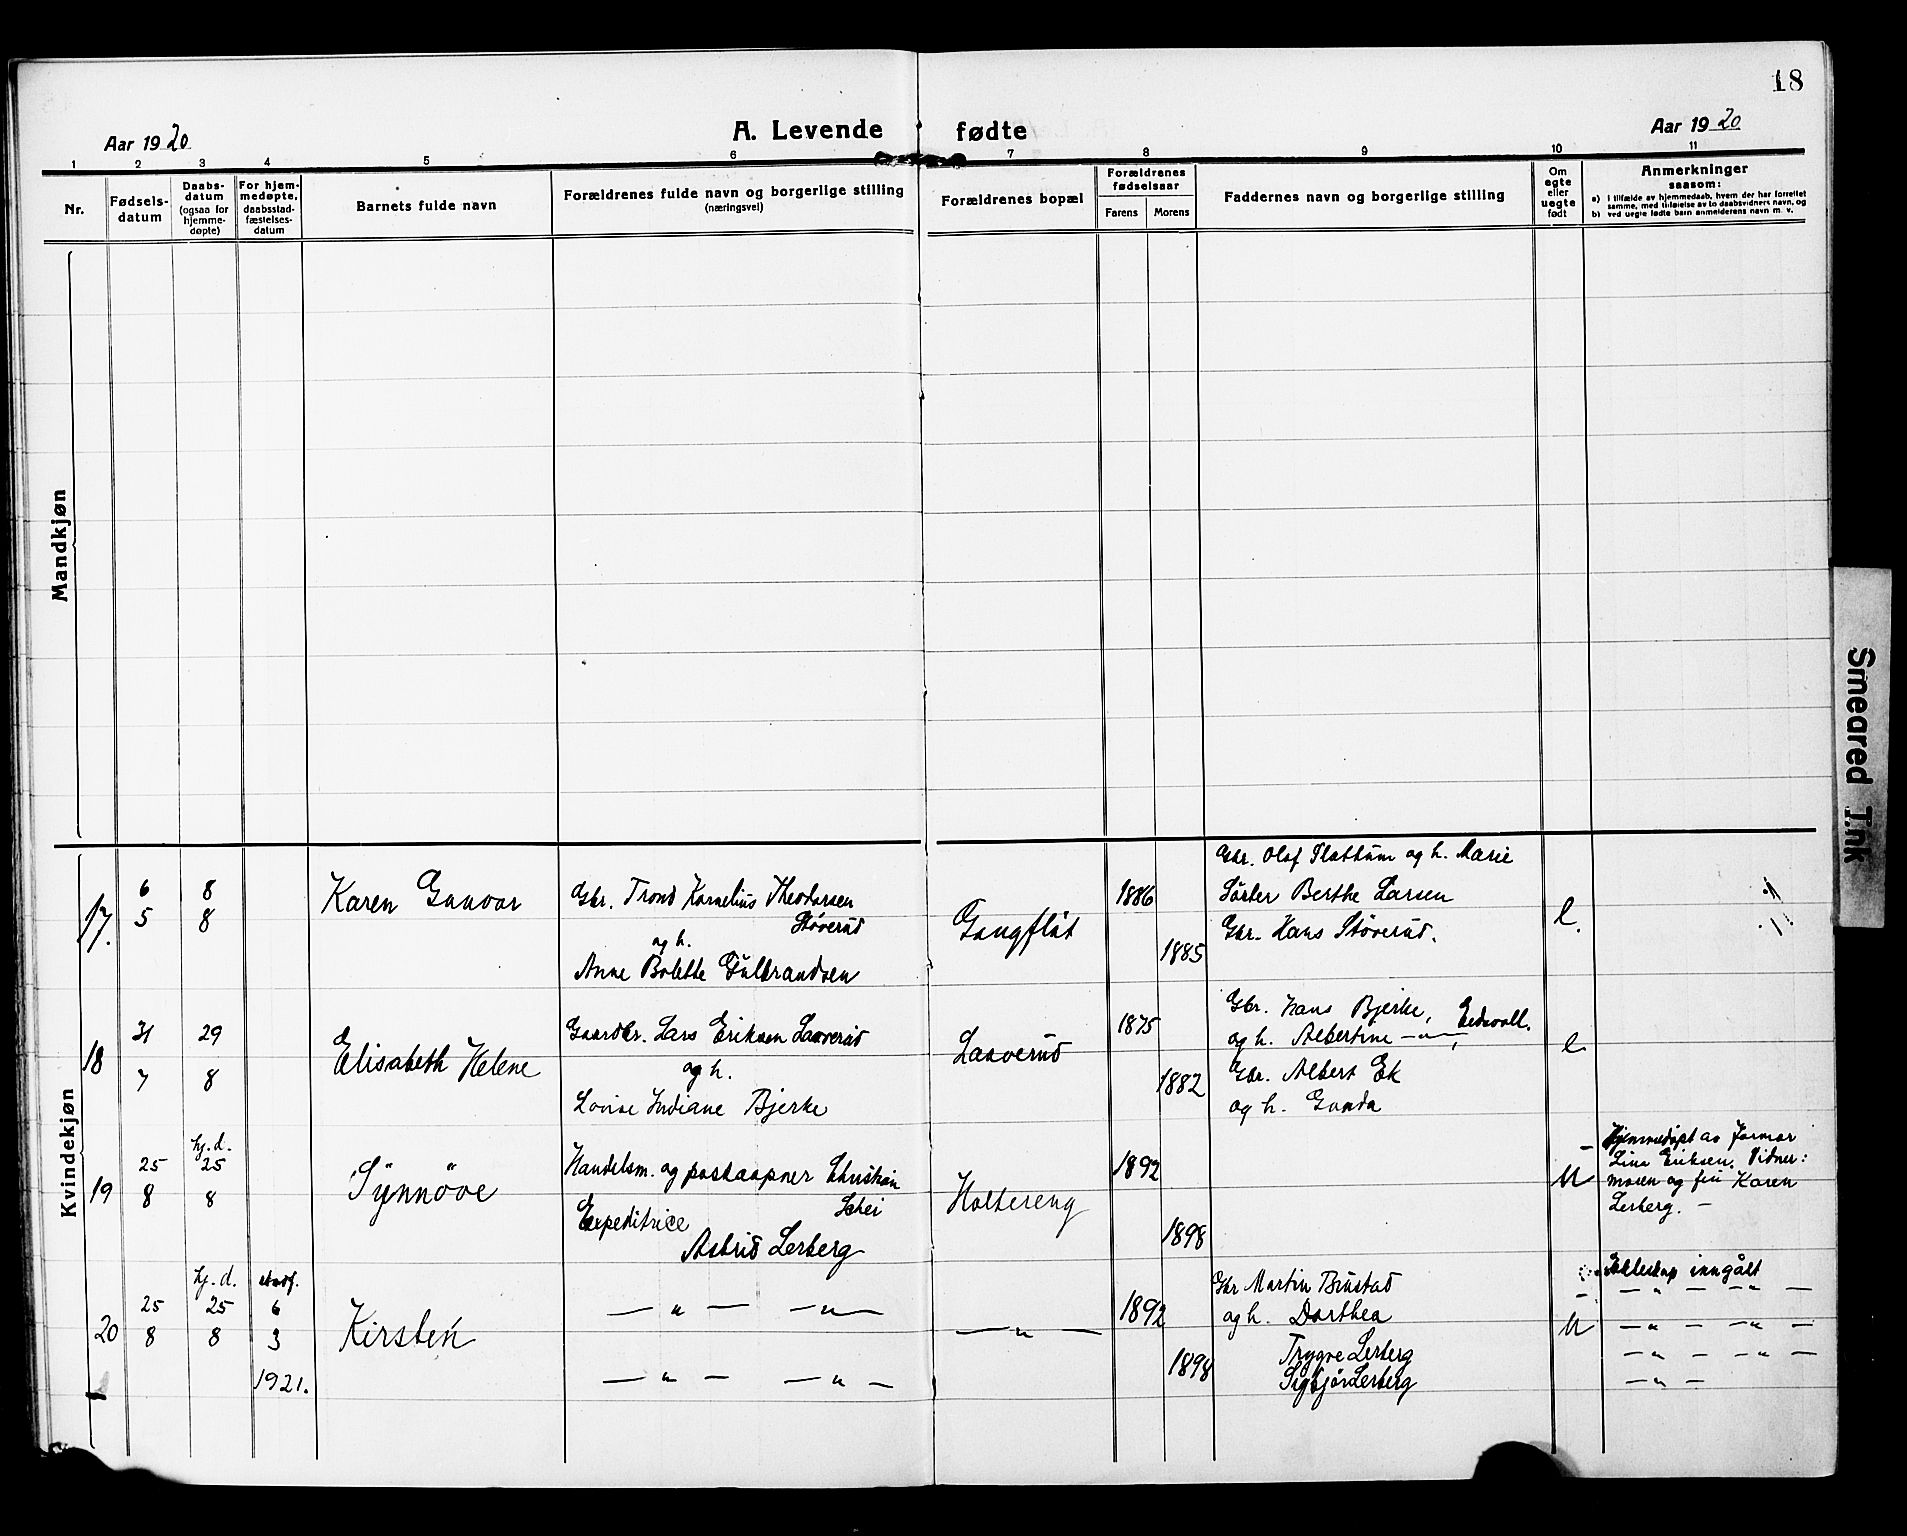 18
Aar 1920
A. Levende fødte
Aar 1920
1 2 3 4 5 6 7 8 9 10 11
Nr.
Fødsels-
datum
Daabs-
datum
(ogsaa for
hjemme-
døpte)
For hjem-
medøpte,
daabsstad-
fæstelses-
datum
Barnets fulde navn
Forældrenes fulde navn og borgerlige stilling
(næringsvei)
Forældrenes bopæl
Forældrenes
fødselsaar
Farens
Morens
Faddernes navn og borgerlige stilling
Om
egte
eller
uegte
født
Anmerkninger
saasom:
a) i tilfælde av hjemmedaab, hvem der har forrettet
samme, med tilføielse av to daabsvidners navn, og
b) ved uegte fødte barn anmelderens navn m. v.
Mandkjøn
Kvindekjøn
17.
6
5
8
8
Karen Gunvor
Gbr. Trond Kornelius Theodorsen
Støverud
og h.
Anne Bolette Gulbrandsen
Gangflöt
1886
1885
Gbr. Olof Slathum og h. Marie
Söster Berthe Larsen
Gbr. Hans Støverud.
e.
18
31
7
29
8
Elisabeth Helene
Gaardbr. Lars Eriksen Laaverud
og h.
Lovise Indiane Bjerke
Laaverud
1875
1882
Gbr. Hans Bjerke, Eidsvoll.
og h. Albertine — " —,
Gbr. Albert Ek
og h. Gunda
e
19
25
8
hj. d.
25
8
Synnöve
Handelsm. og postaapner Christian
Schei
Expeditrice
Astrid Lerberg
Holtereng
1892
1898
U
Hjemmedøpt av Jormor
Line Eriksen. Vidner:
moren og frü Karen
Lerberg. —
20
25
8
hj. d.
25
8
stadf.
6
3
1921.
Kirsten
— " — — " —
— " — — " —
— " —
1892
1898
Gbr Martin Trustad
og h. Dorthea
Trygve Lerberg
Sigbjør Lerberg
U
Ekteskap inngått
— " — — " —
— " — — " —
— " — — " —
— " —
Smeared Ink